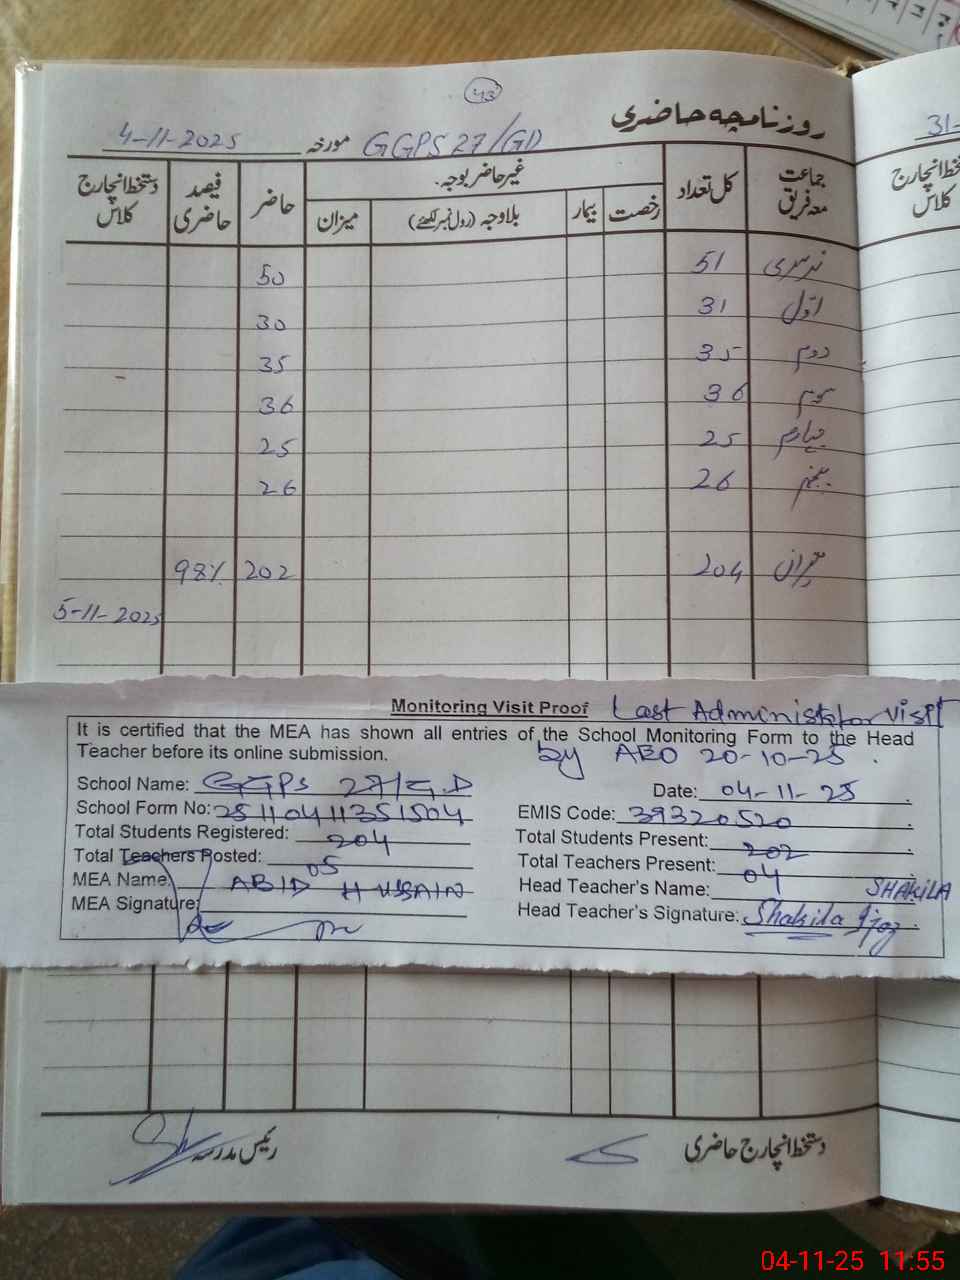 43
روزنامچہ حاضری
31-
GGPS 27/GD مورخہ 4-11-2025
جماعت معہ فریق کل تعداد غیر حاضر بوجہ۔ حاضر فیصد حاضری دستخط انچارج کلاس
رخصت بیمار بلاوجہ (رول نمبر لکھئے) میزان
دستخط انچارج کلاس
نرسری 51 50
اوّل 31 30
دوم 35 35
سوم 36 36
چہارم 25 25
پنجم 26 26
میزان 204 202 98%
5-11-2025
Monitoring Visit Proof Last Administrator Visit
It is certified that the MEA has shown all entries of the School Monitoring Form to the Head
Teacher before its online submission. by AEO 20-10-25.
School Name: GGPS 27/G.D Date: 04-11-25
School Form No: 25110411351504 EMIS Code: 39320520
Total Students Registered: 204 Total Students Present: 202
Total Teachers Posted: 05 Total Teachers Present: 04
MEA Name: ABID HUSSAIN Head Teacher's Name: SHAKILA
MEA Signature: Head Teacher's Signature: Shakila Ijaz
دستخط انچارج حاضری رئیس مدرسہ
04-11-25 11:55